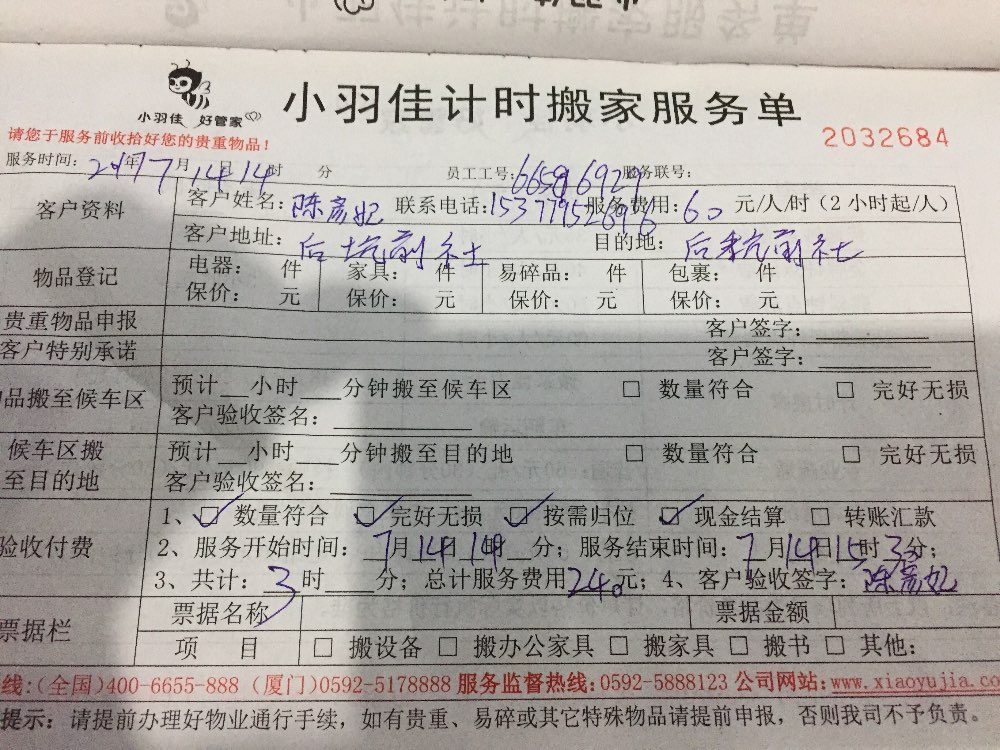 小羽佳 好管家
小羽佳计时搬家服务单
请您于服务前收拾好您的贵重物品！
2032684
服务时间：2017年7月14日14时 分 员工工号： 服务联号：
客户资料 客户姓名：陈彦妃 联系电话： 服务费用：60元/人/时（2小时起/人）
客户地址：后坑前社 目的地：后坑前社
物品登记 电器： 件 家具： 件 易碎品： 件 包裹： 件
保价： 元 保价： 元 保价： 元 保价： 元
贵重物品申报 客户签字：
客户特别承诺 客户签字：
品搬至候车区 预计__小时___分钟搬至候车区 □ 数量符合 □ 完好无损
客户验收签名：
候车区搬至目的地 预计__小时___分钟搬至目的地 □ 数量符合 □ 完好无损
客户验收签名：
验收付费 1、☑ 数量符合 ☑ 完好无损 ☑ 按需归位 ☑ 现金结算 □ 转账汇款
2、服务开始时间：7月14日14时__分；服务结束时间：7月14日15时3分；
3、共计：3时___分；总计服务费用240元；4、客户验收签字：陈彦妃
票据栏 票据名称 票据金额
项 目 □ 搬设备 □ 搬办公家具 □ 搬家具 □ 搬书 □ 其他：
线：（全国）400-6655-888（厦门）0592-5178888 服务监督热线：0592-5888123 公司网站：www.xiaoyujia.co
提示：请提前办理好物业通行手续，如有贵重、易碎或其它特殊物品请提前申报，否则我司不予负责。